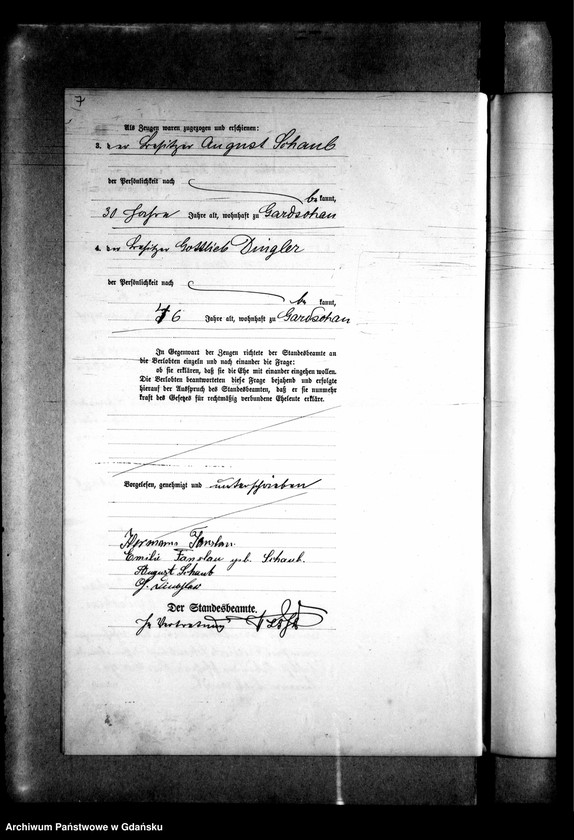 7
Als Zeugen waren zugezogen und erschienen:
3. der Besitzer August Schaub
der Persönlichkeit nach
be kannt,
30 Jahre Jahre alt, wohnhaft zu Gardschau
4. der Besitzer Gottlieb Dingler
der Persönlichkeit nach
be kannt,
46 Jahre alt, wohnhaft zu Gardschau
In Gegenwart der Zeugen richtete der Standesbeamte an
die Verlobten einzeln und nach einander die Frage:
ob sie erklären, daß sie die Ehe mit einander eingehen wollen.
Die Verlobten beantworteten diese Frage bejahend und erfolgte
hierauf der Ausspruch des Standesbeamten, daß er sie nunmehr
kraft des Gesetzes für rechtmäßig verbundene Eheleute erkläre.
Vorgelesen, genehmigt und unterschrieben
Hermann Fanslau
Emilie Fanslau geb. Schaub.
August Schaub
G. Dingler
Der Standesbeamte.
In Vertretung
Archiwum Państwowe w Gdańsku